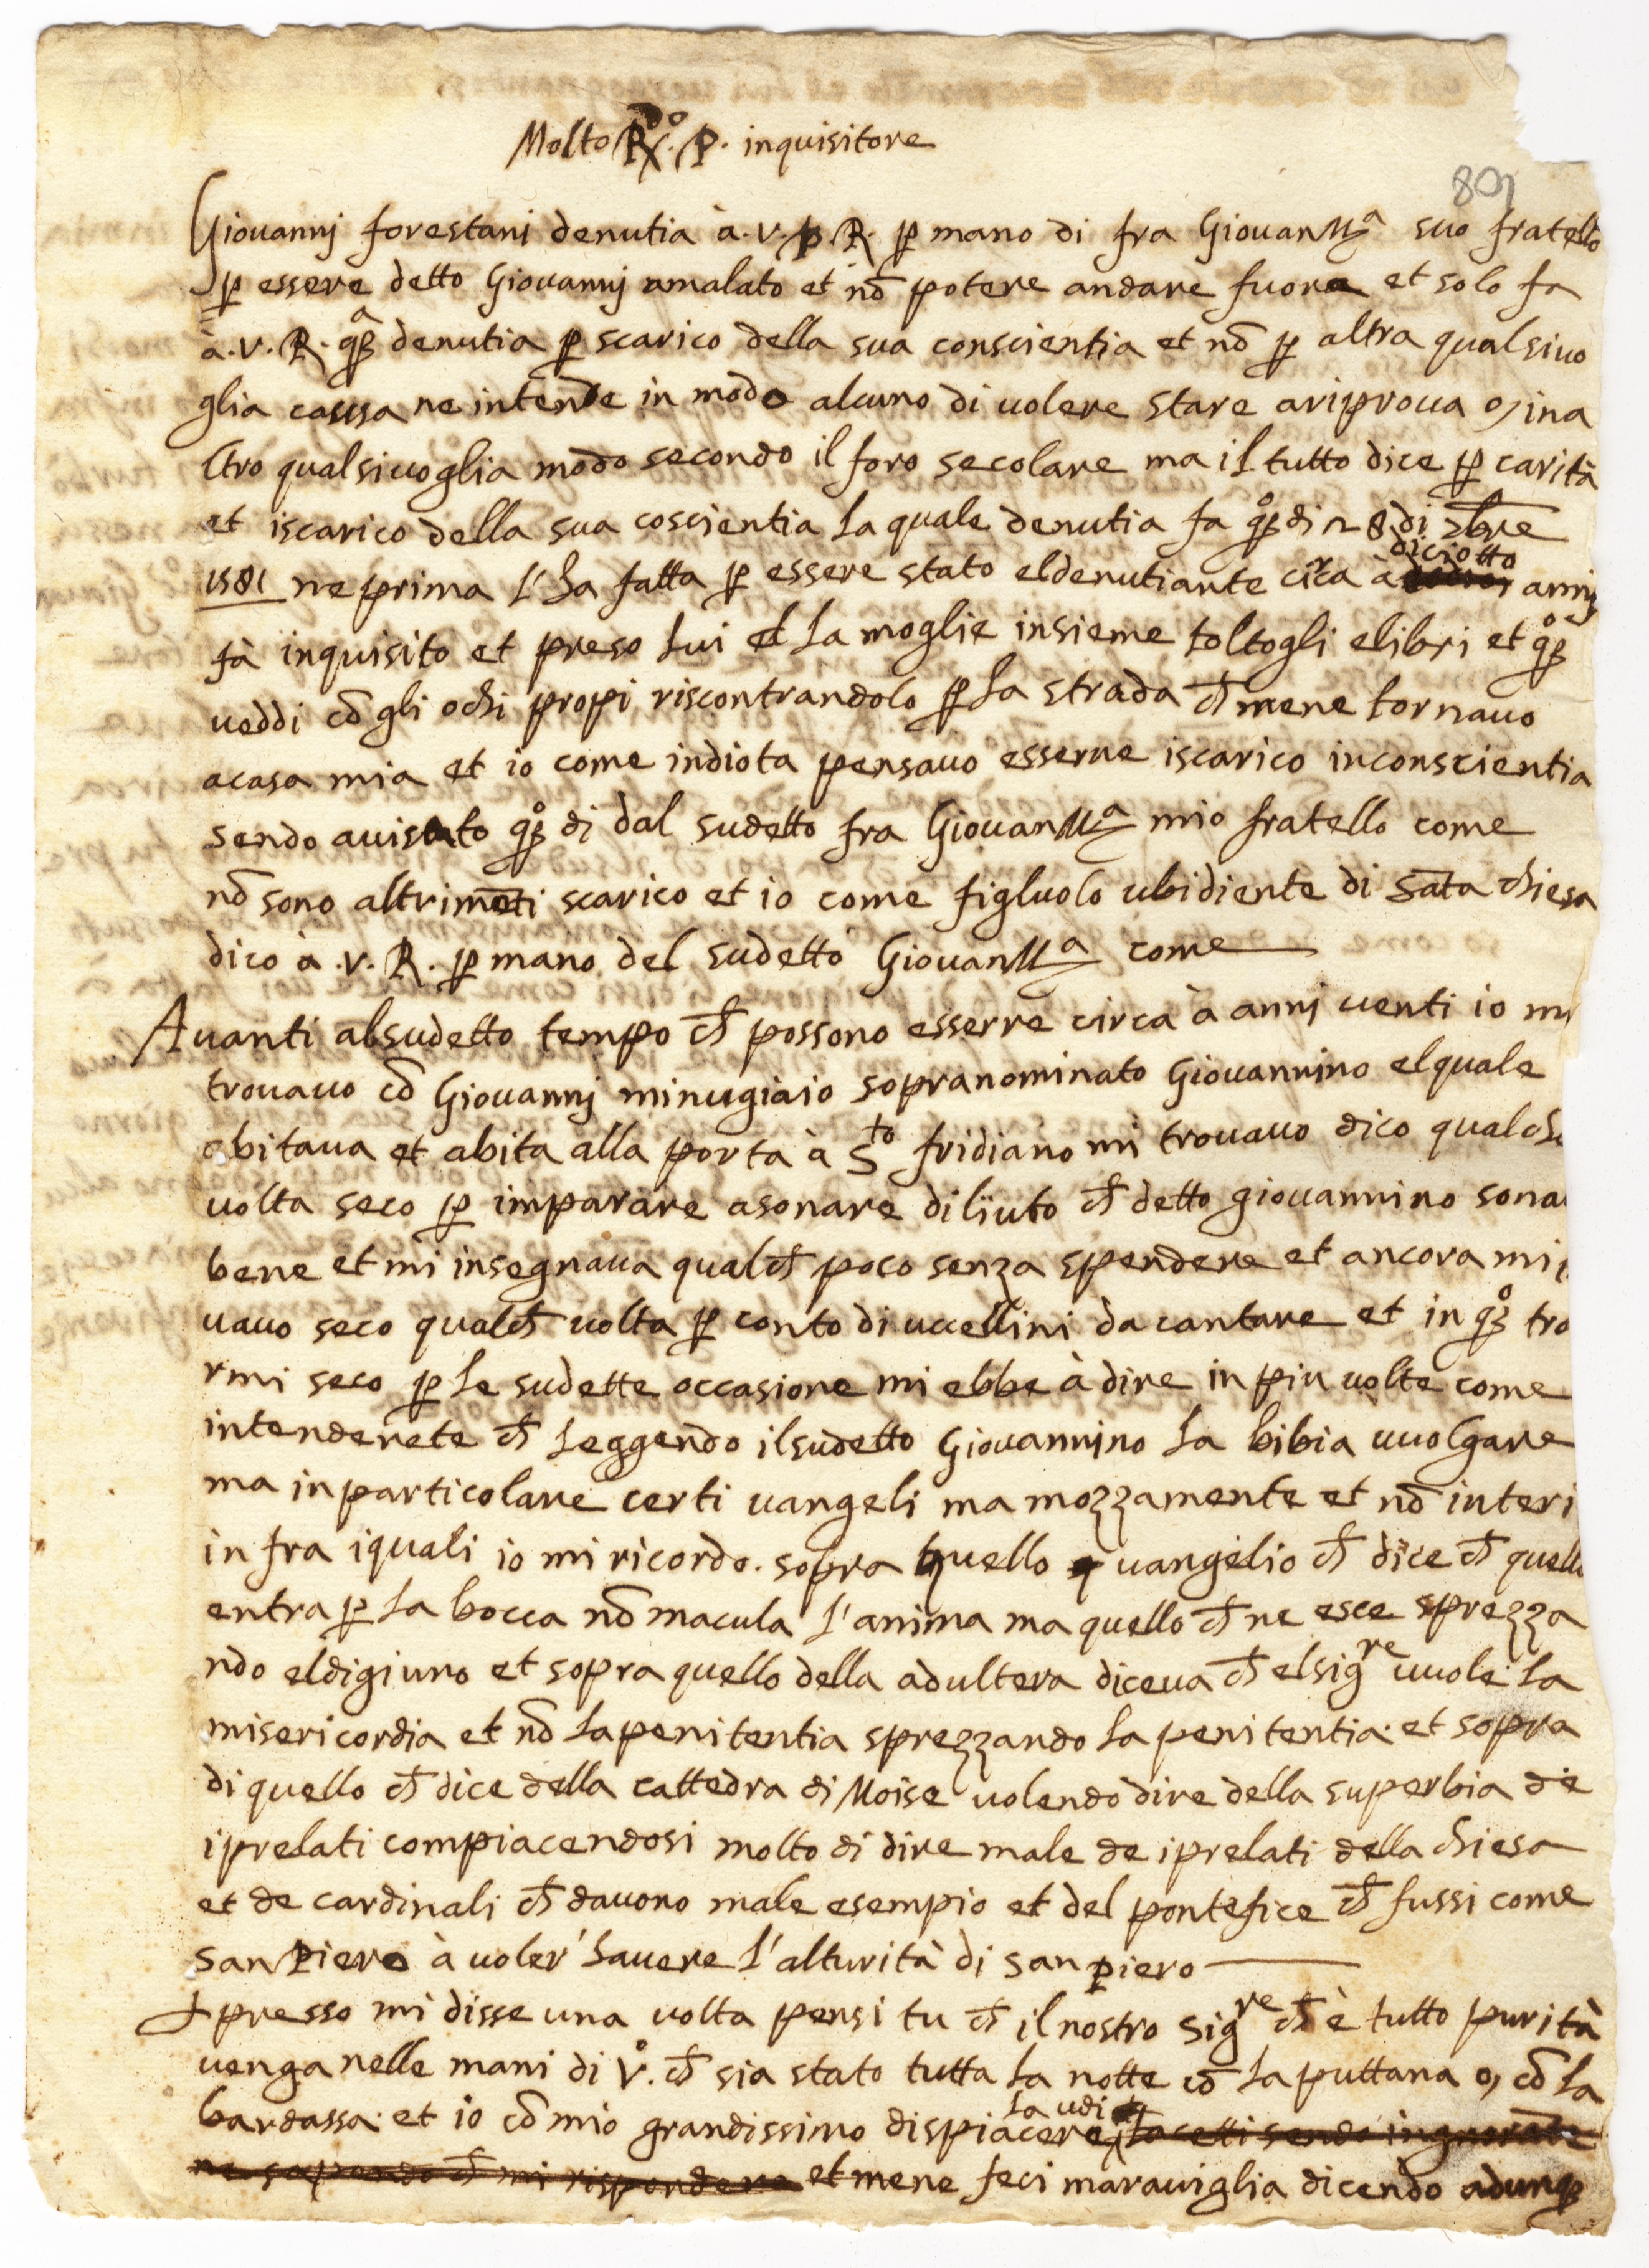 Molto R.do P. inquisitore
801
Giouannj forestani denutia à .v.p.R. p mano di fra GiouanMa suo fratello
p essere detto Giouannj amalato et nō potere andare fuora et solo fa
à .v.R. qa denutia p scarico della sua conscientia et nō p altra qualsiuo
glia causa ne intende in modo alcuno di uolere stare ariproua o, ina
ltro qualsiuoglia modo secondo il foro secolare ma il tutto dice p carità
et iscarico della sua coscientia la quale denutia fa qo di 28 di xbre
1581 ne prima l'ha fatta p essere stato eldenutiante circa à diciotto annj
fà inquisito et preso lui et la moglie insieme toltogli elibri et qo
ueddi cō gli ochi propi riscontrandolo p la strada ch mene tornauo
acasa mia et io come indiota pensauo esserne iscarico inconscientia
sendo auisato qo di dal sudetto fra GiouanMa mio fratello come
nō sono altrimēti scarico et io come figluolo ubidiente di sāta chiesa
dico à .v.R. p mano del sudetto GiouanMa come
Auanti alsudetto tempo ch possono esserre circa à annj uenti io mi
trouauo cō Giouannj minugiaio sopranominato Giouannino elquale
abitaua et abita alla porta à Sto fridiano mi trouauo dico qualch
uolta seco p imparare asonare diliuto ch detto giouannino sona
bene et mi insegnaua qualch poco senza spendere et ancora mi
uauo seco qualch uolta p conto di uccellini da cantare et in qo tro
rmi seco p le sudette occasione mi ebbe à dire in piu uolte come
intenderete ch leggendo ilsudetto Giouannino la bibia uuolgare
ma inparticolare certi uangeli ma mozzamente et nō interi
infra iquali io mi ricordo. sopra quello uangelio ch dice ch quello
entra p la bocca nō macula l'anima ma quello ch ne esce sprezza
ndo eldigiuno et sopra quello della adultera diceua ch elsigre uuole la
misericordia et nō lapenitentia sprezzando la penitentia et sopra
di quello ch dice della cattedra di Moise uolendo dire della superbia de
iprelati compiacendosi molto di dire male de iprelati della chiesa
et de cardinali ch dauono male esempio et del pontefice ch fussi come
san Piero à uoler' hauere l'alturità di san piero
presso mi disse una uolta pensi tu ch il nostro sigre ch è tutto purità
uenga nelle mani di vo. ch sia stato tutta la notte cō la puttana o, cō la
bardassa et io cō mio grandissimo dispiacere la udi
et mene feci marauiglia dicendo adunq